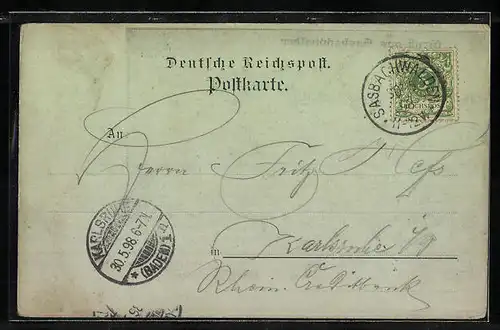 Deutsche Reichspost.
Postkarte.
SASBACHWALDEN
11-12V
An
Herrn Fritz
KARLSRUHE
30.5.98.6-7N.
(BADEN) 1
in Karlsruhe
Rhein. Creditbank